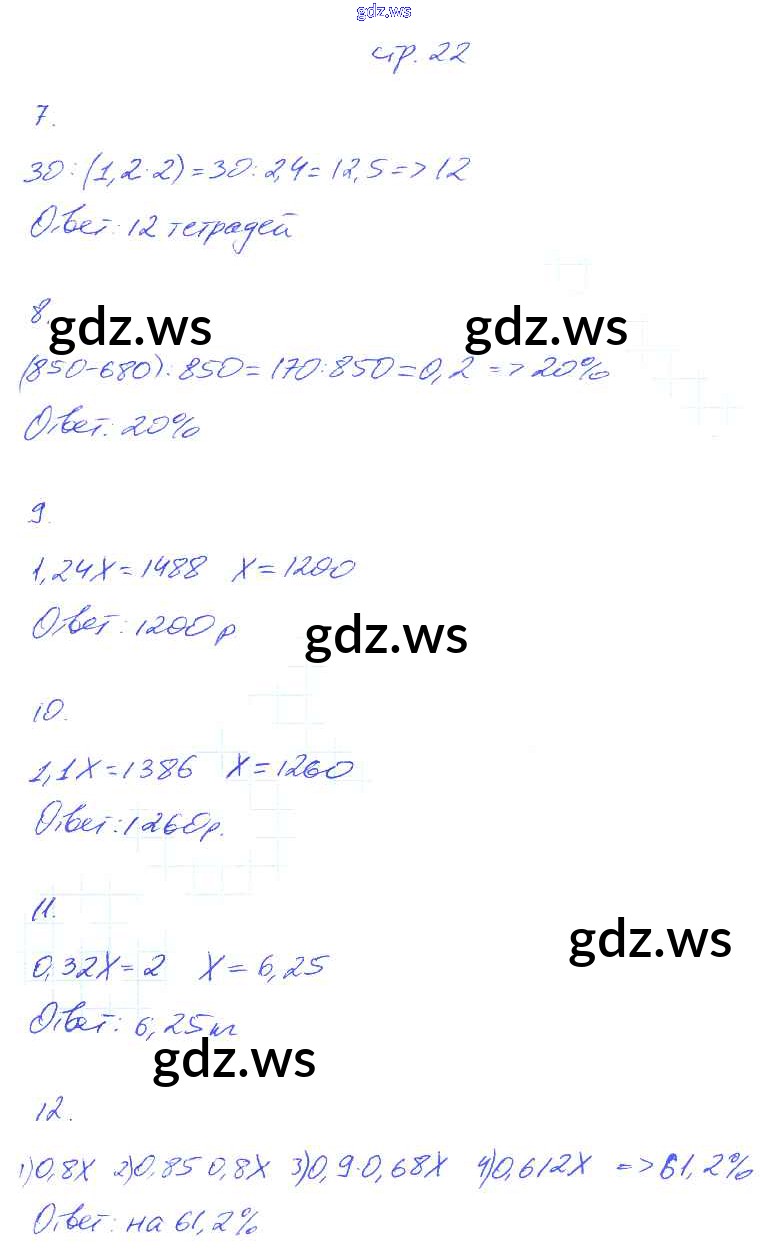 gdz.ws
стр. 22
7.
30:(1,2·2)=30:2,4=12,5=>12
Ответ: 12 тетрадей
8.
gdz.ws gdz.ws
(850-680):850=170:850=0,2=>20%
Ответ: 20%
9.
1,24x=1488 x=1200
Ответ: 1200р
gdz.ws
10.
1,1x=1386 x=1260
Ответ: 1260р.
11.
gdz.ws
0,32x=2 x=6,25
Ответ: 6,25кг
gdz.ws
12.
1)0,8x 2)0,85·0,8x 3)0,9·0,68x 4)0,612x =>61,2%
Ответ: на 61,2%